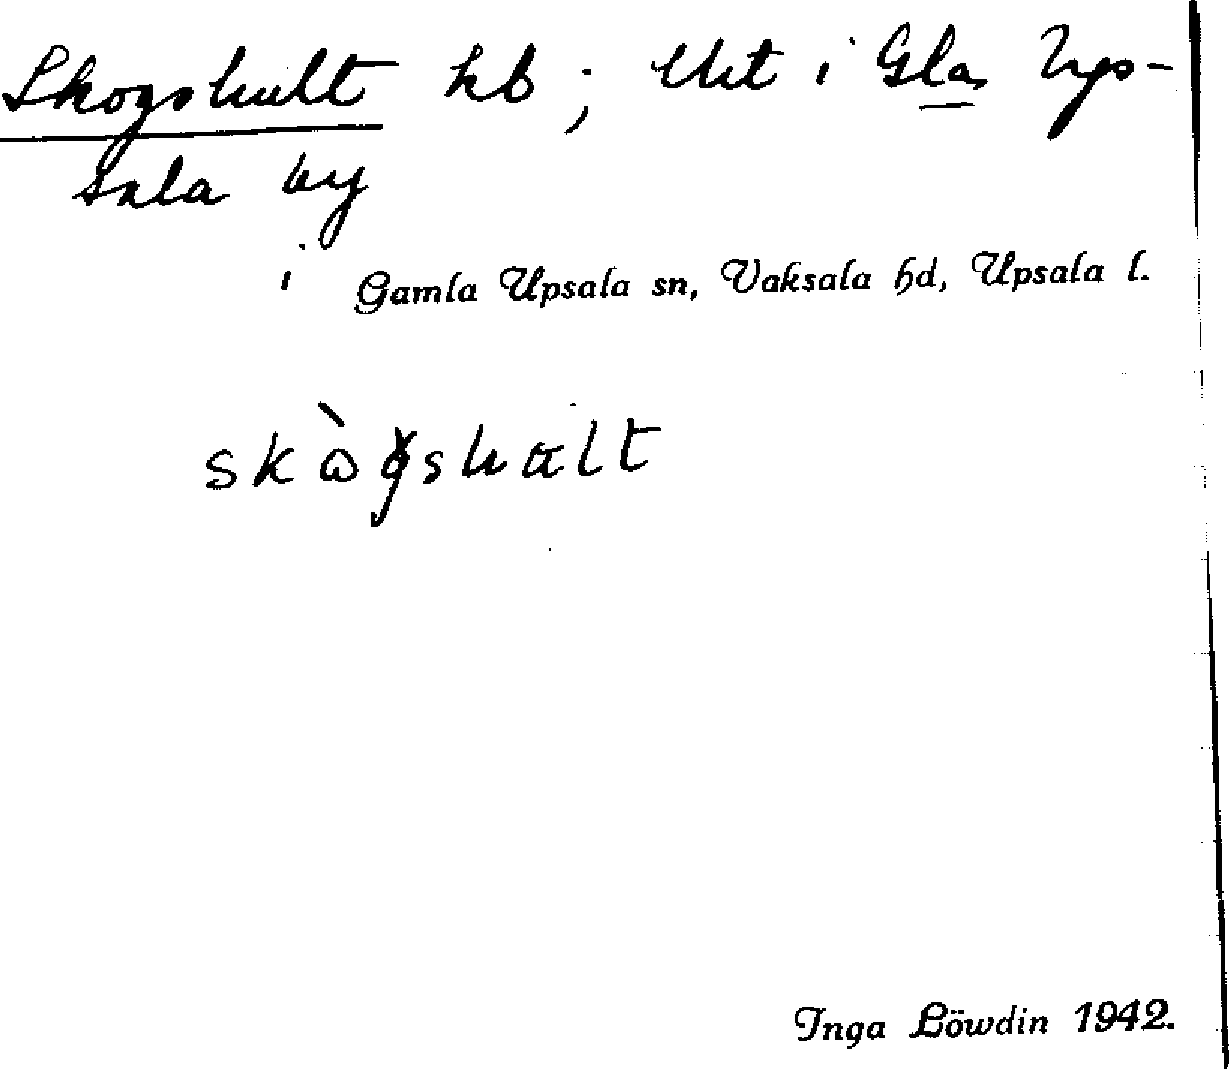 Skogshult hb; Uet i Gla Up-
sala by
i Gamla Upsala sn, Vaksala hd, Upsala l.
Inga Löwdin 1942.